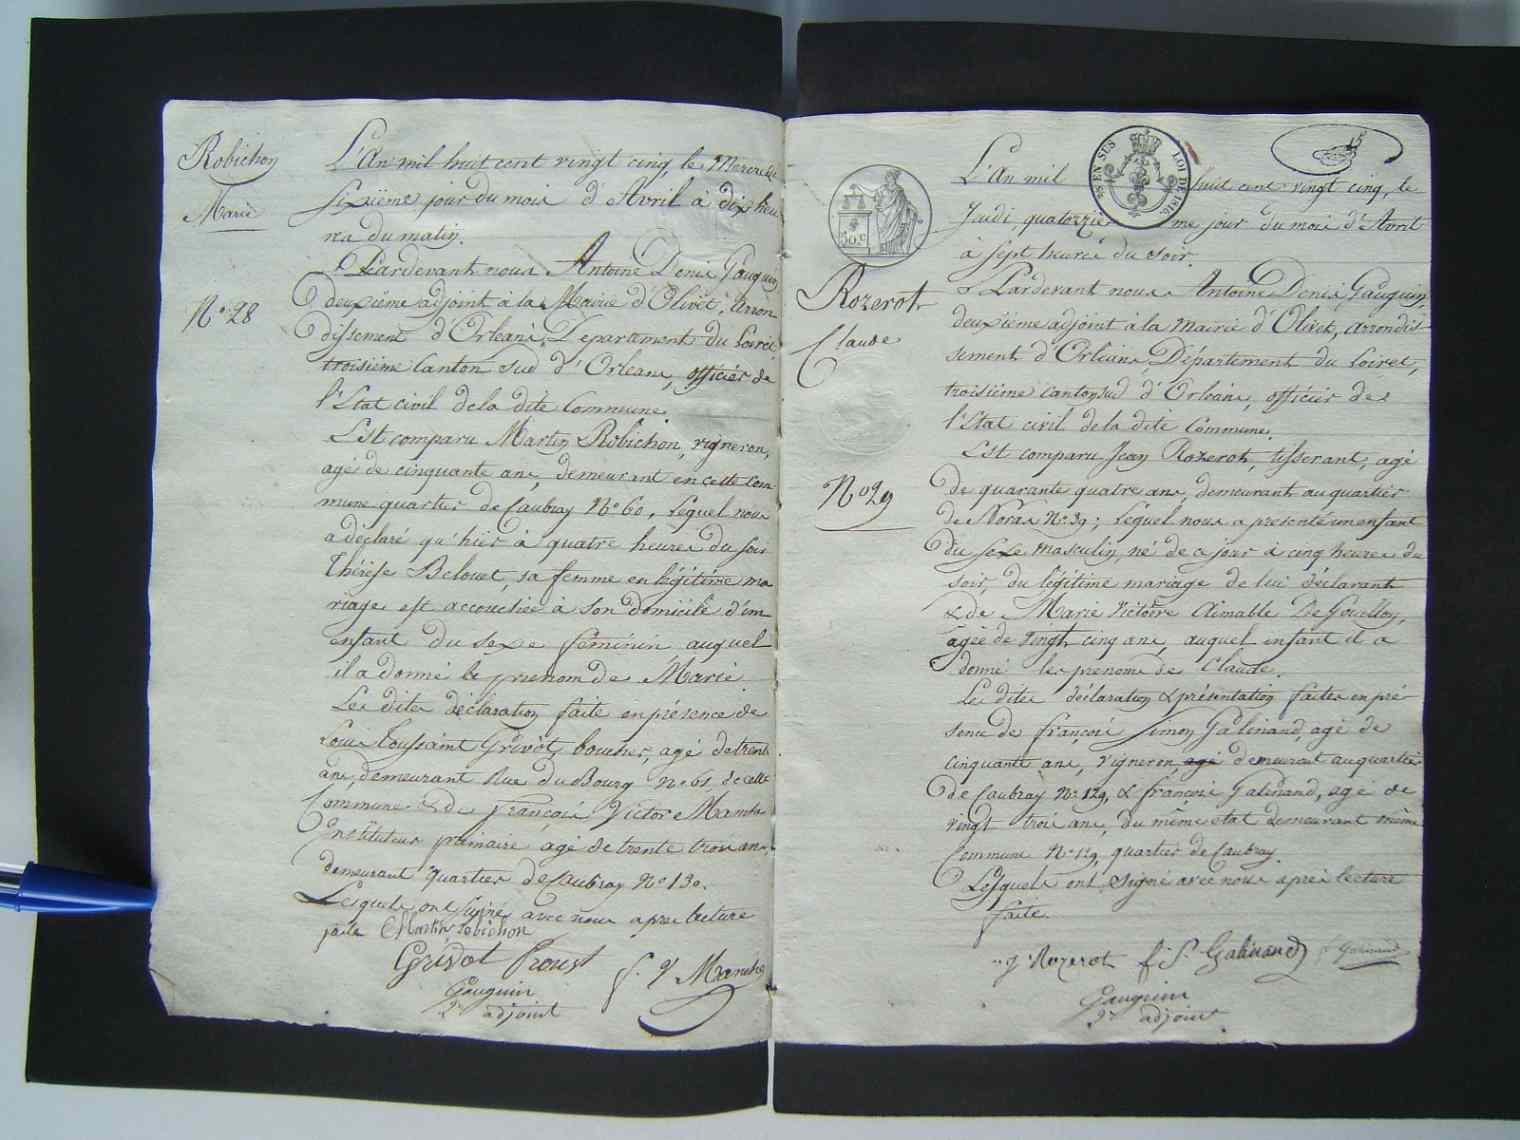 Robichon
Marie
N° 28
L'An mil huit cent vingt cinq, le Mercredi
sixième jour du mois d'Avril à dix heu
res du matin.
Pardevant nous Antoine Denis Gauguin
deuxième adjoint à la Mairie d'Olivet, Arron
dissement d'Orléans, Département du Loiret
troisième Canton sud d'Orleans, officier de
l'Etat civil de la dite Commune.
Est comparu Martin Robichon, vigneron,
agé de cinquante ans, demeurant en cette com
mune quartier de Caubray N° 60, lequel nous
a déclaré qu'hier à quatre heures du soir
Thérèse Belouet, sa femme en légitime ma
riage est accouchée à son domicile d'un
enfant du sexe féminin auquel
il a donné le prenom de Marie.
Les dites déclaration faite en présence de
Louis Toussaint Grivot, boucher, agé de trente
ans, demeurant Rue du Bourg N° 61 de cette
Commune & de François Victor
Instituteur primaire agé de trente trois ans,
demeurant quartier de Caubray N° 130.
Lesquels ont signé avec nous apres lecture
faite Martin robichon
Grivot Proust f. V
Gauguin
2e adjoint
EN SUS LOI DE 1816.
50 c
15
Rozerot
Claude
N° 29
L'An mil huit cent vingt cinq, le
Jeudi, quatorzième jour du mois d'Avril
à sept heures du soir.
Pardevant nous Antoine Denis Gauguin,
deuxième adjoint à la Mairie d'Olivet, arrondis
sement d'Orléans, Département du Loiret,
troisième canton sud d'Orléans, officier de
l'Etat civil de la dite Commune.
Est comparu Jean Rozerot, tisserant, agé
de quarante quatre ans, demeurant au quartier
de Noras N° 39; lequel nous a presenté un enfant
du sexe masculin, né de ce jour à cinq heures du
soir, du légitime mariage de lui déclarant
& de Marie Victoire Aimable
agée de vingt cinq ans, auquel enfant il a
donné les prenoms de Claude.
Les dites déclaration & présentation faites en pré
sence de françois Simon Galinand, agé de
cinquante ans, vigneron, agé demeurant au quartier
de Caubray N° 129, & françois Galinand, agé de
vingt trois ans, du même état demeurant même
Commune N° 129 quartier de Caubray.
Lesquels ont signé avec nous après lecture
faite.
J. Rozerot f. S. Galinand f Galinand
Gauguin
2e adjoint